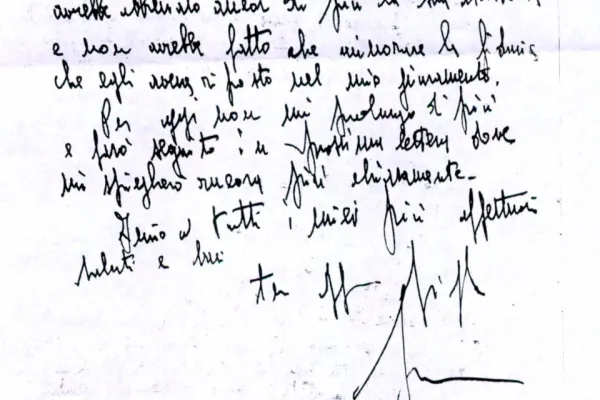 avrebbe ancor di più la sua
e non avrebbe fatto che minorare la fiducia
che egli aveva riposto nel mio giuramento.
Per oggi non mi prolungo di più
e farò seguito in prossima lettera dove
mi spiegherò ancora più chiaramente.
Invio a tutti i miei più affettuosi
saluti e baci